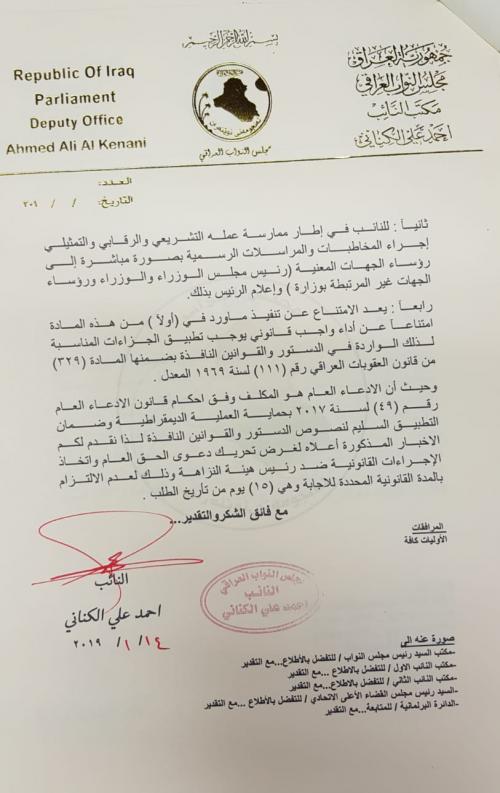 بسم الله الرحمن الرحيم
Republic Of Iraq
Parliament
Deputy Office
Ahmed Ali Al Kenani
جمهورية العراق
مجلس النواب العراقي
مكتب النائب
احمد علي الكناني
مجلس النواب العراقي
العدد:
التاريخ: / / ٢٠١
ثانياً : للنائب في إطار ممارسة عمله التشريعي والرقابي والتمثيلي
إجراء المخاطبات والمراسلات الرسمية بصورة مباشرة إلى
رؤساء الجهات المعنية (رئيس مجلس الوزراء والوزراء ورؤساء
الجهات غير المرتبطة بوزارة ) وإعلام الرئيس بذلك.
رابعاً : يعد الامتناع عن تنفيذ ماورد في (أولاً) من هذه المادة
امتناعاً عن أداء واجب قانوني يوجب تطبيق الجزاءات المناسبة
لذلك الواردة في الدستور والقوانين النافذة بضمنها المادة (٣٢٩)
من قانون العقوبات العراقي رقم (١١١) لسنة ١٩٦٩ المعدل .
وحيث أن الادعاء العام هو المكلف وفق احكام قانون الادعاء العام
رقم (٤٩) لسنة ٢٠١٧ بحماية العملية الديمقراطية وضمان
التطبيق السليم لنصوص الدستور والقوانين النافذة لذا نقدم لكم
الاخبار المذكورة أعلاه لغرض تحريك دعوى الحق العام واتخاذ
الإجراءات القانونية ضد رئيس هيئة النزاهة وذلك لعدم الالتزام
بالمدة القانونية المحددة للاجابة وهي (١٥) يوم من تأريخ الطلب .
مع فائق الشكر والتقدير...
المرافقات
الأوليات كافة
النائب
احمد علي الكناني
١٤/ ١/ ٢٠١٩
مجلس النواب العراقي
النائب
احمد علي الكناني
صورة عنه الى
-مكتب السيد رئيس مجلس النواب / للتفضل بالأطلاع...مع التقدير
-مكتب النائب الاول / للتفضل بالاطلاع ...مع التقدير
-مكتب النائب الثاني / للتفضل بالأطلاع...مع التقدير
-السيد رئيس مجلس القضاء الأعلى الاتحادي / للتفضل بالأطلاع ...مع التقدير
-الدائرة البرلمانية / للمتابعة...مع التقدير